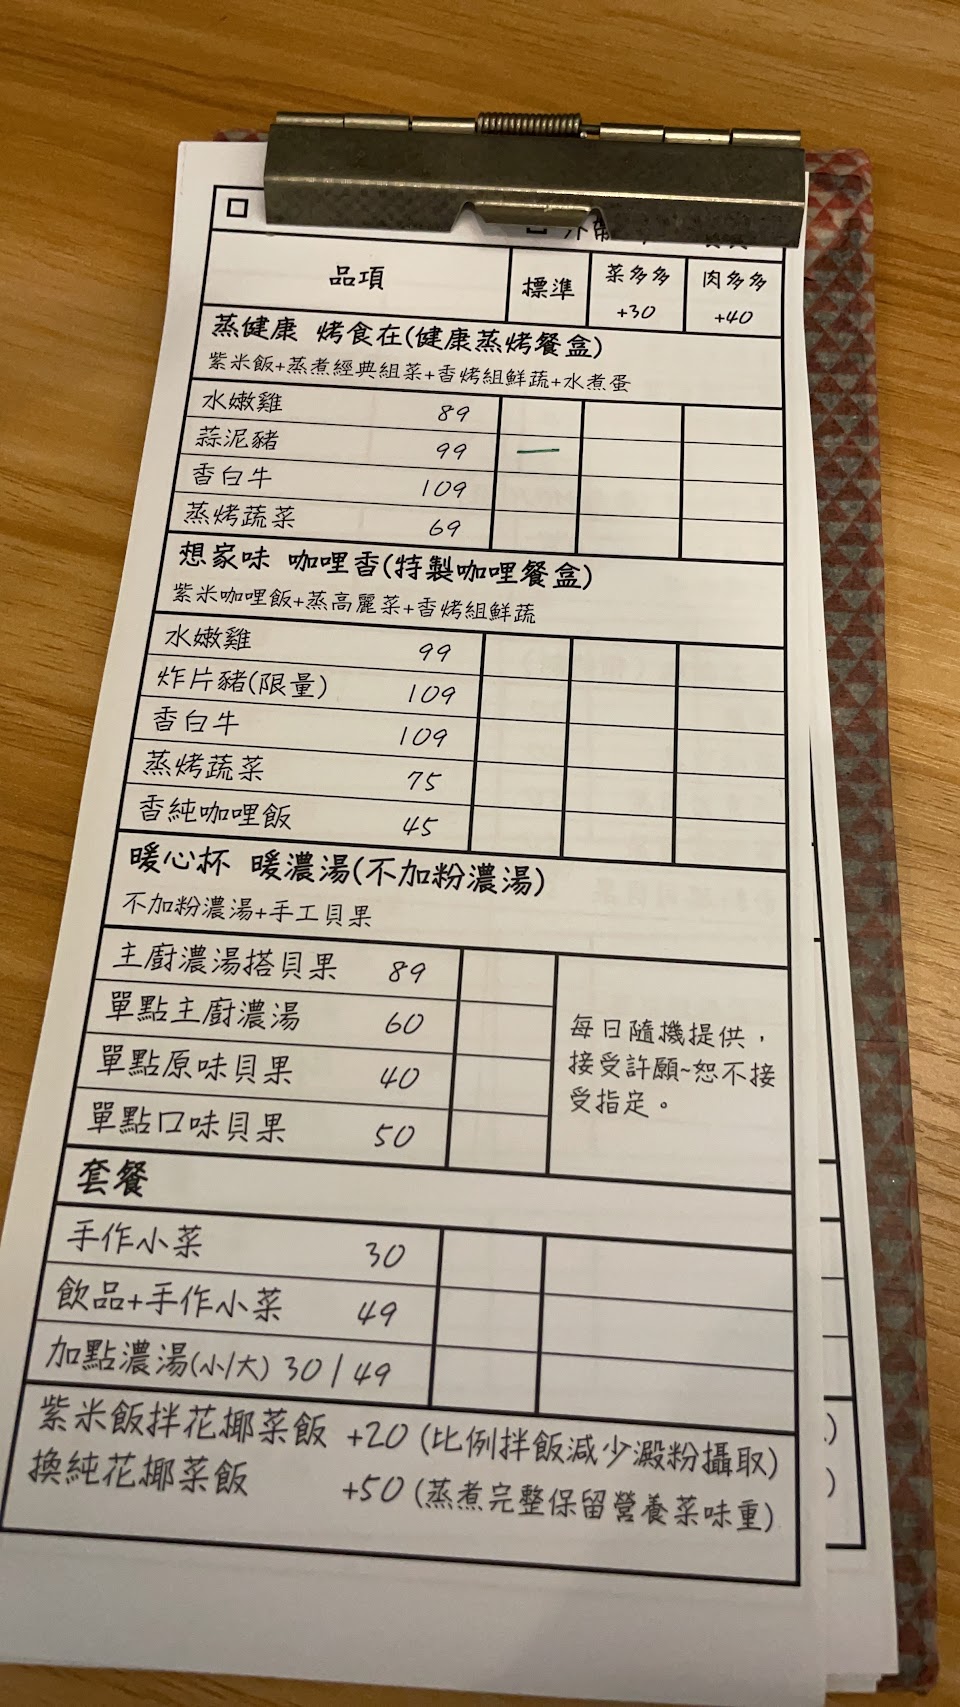 品項 標準 菜多多 +30 肉多多 +40
蒸健康 烤食在(健康蒸烤餐盒)
紫米飯+蒸煮經典組菜+香烤組鮮蔬+水煮蛋
水嫩雞 89
蒜泥豬 99
香白牛 109
蒸烤蔬菜 69
想家味 咖哩香(特製咖哩餐盒)
紫米咖哩飯+蒸高麗菜+香烤組鮮蔬
水嫩雞 99
炸片豬(限量) 109
香白牛 109
蒸烤蔬菜 75
香純咖哩飯 45
暖心杯 暖濃湯(不加粉濃湯)
不加粉濃湯+手工貝果
主廚濃湯搭貝果 89
單點主廚濃湯 60
單點原味貝果 40
單點口味貝果 50
每日隨機提供，
接受許願~恕不接
受指定。
套餐
手作小菜 30
飲品+手作小菜 49
加點濃湯(小/大) 30/49
紫米飯拌花椰菜飯 +20(比例拌飯減少澱粉攝取)
換純花椰菜飯 +50(蒸煮完整保留營養菜味重)